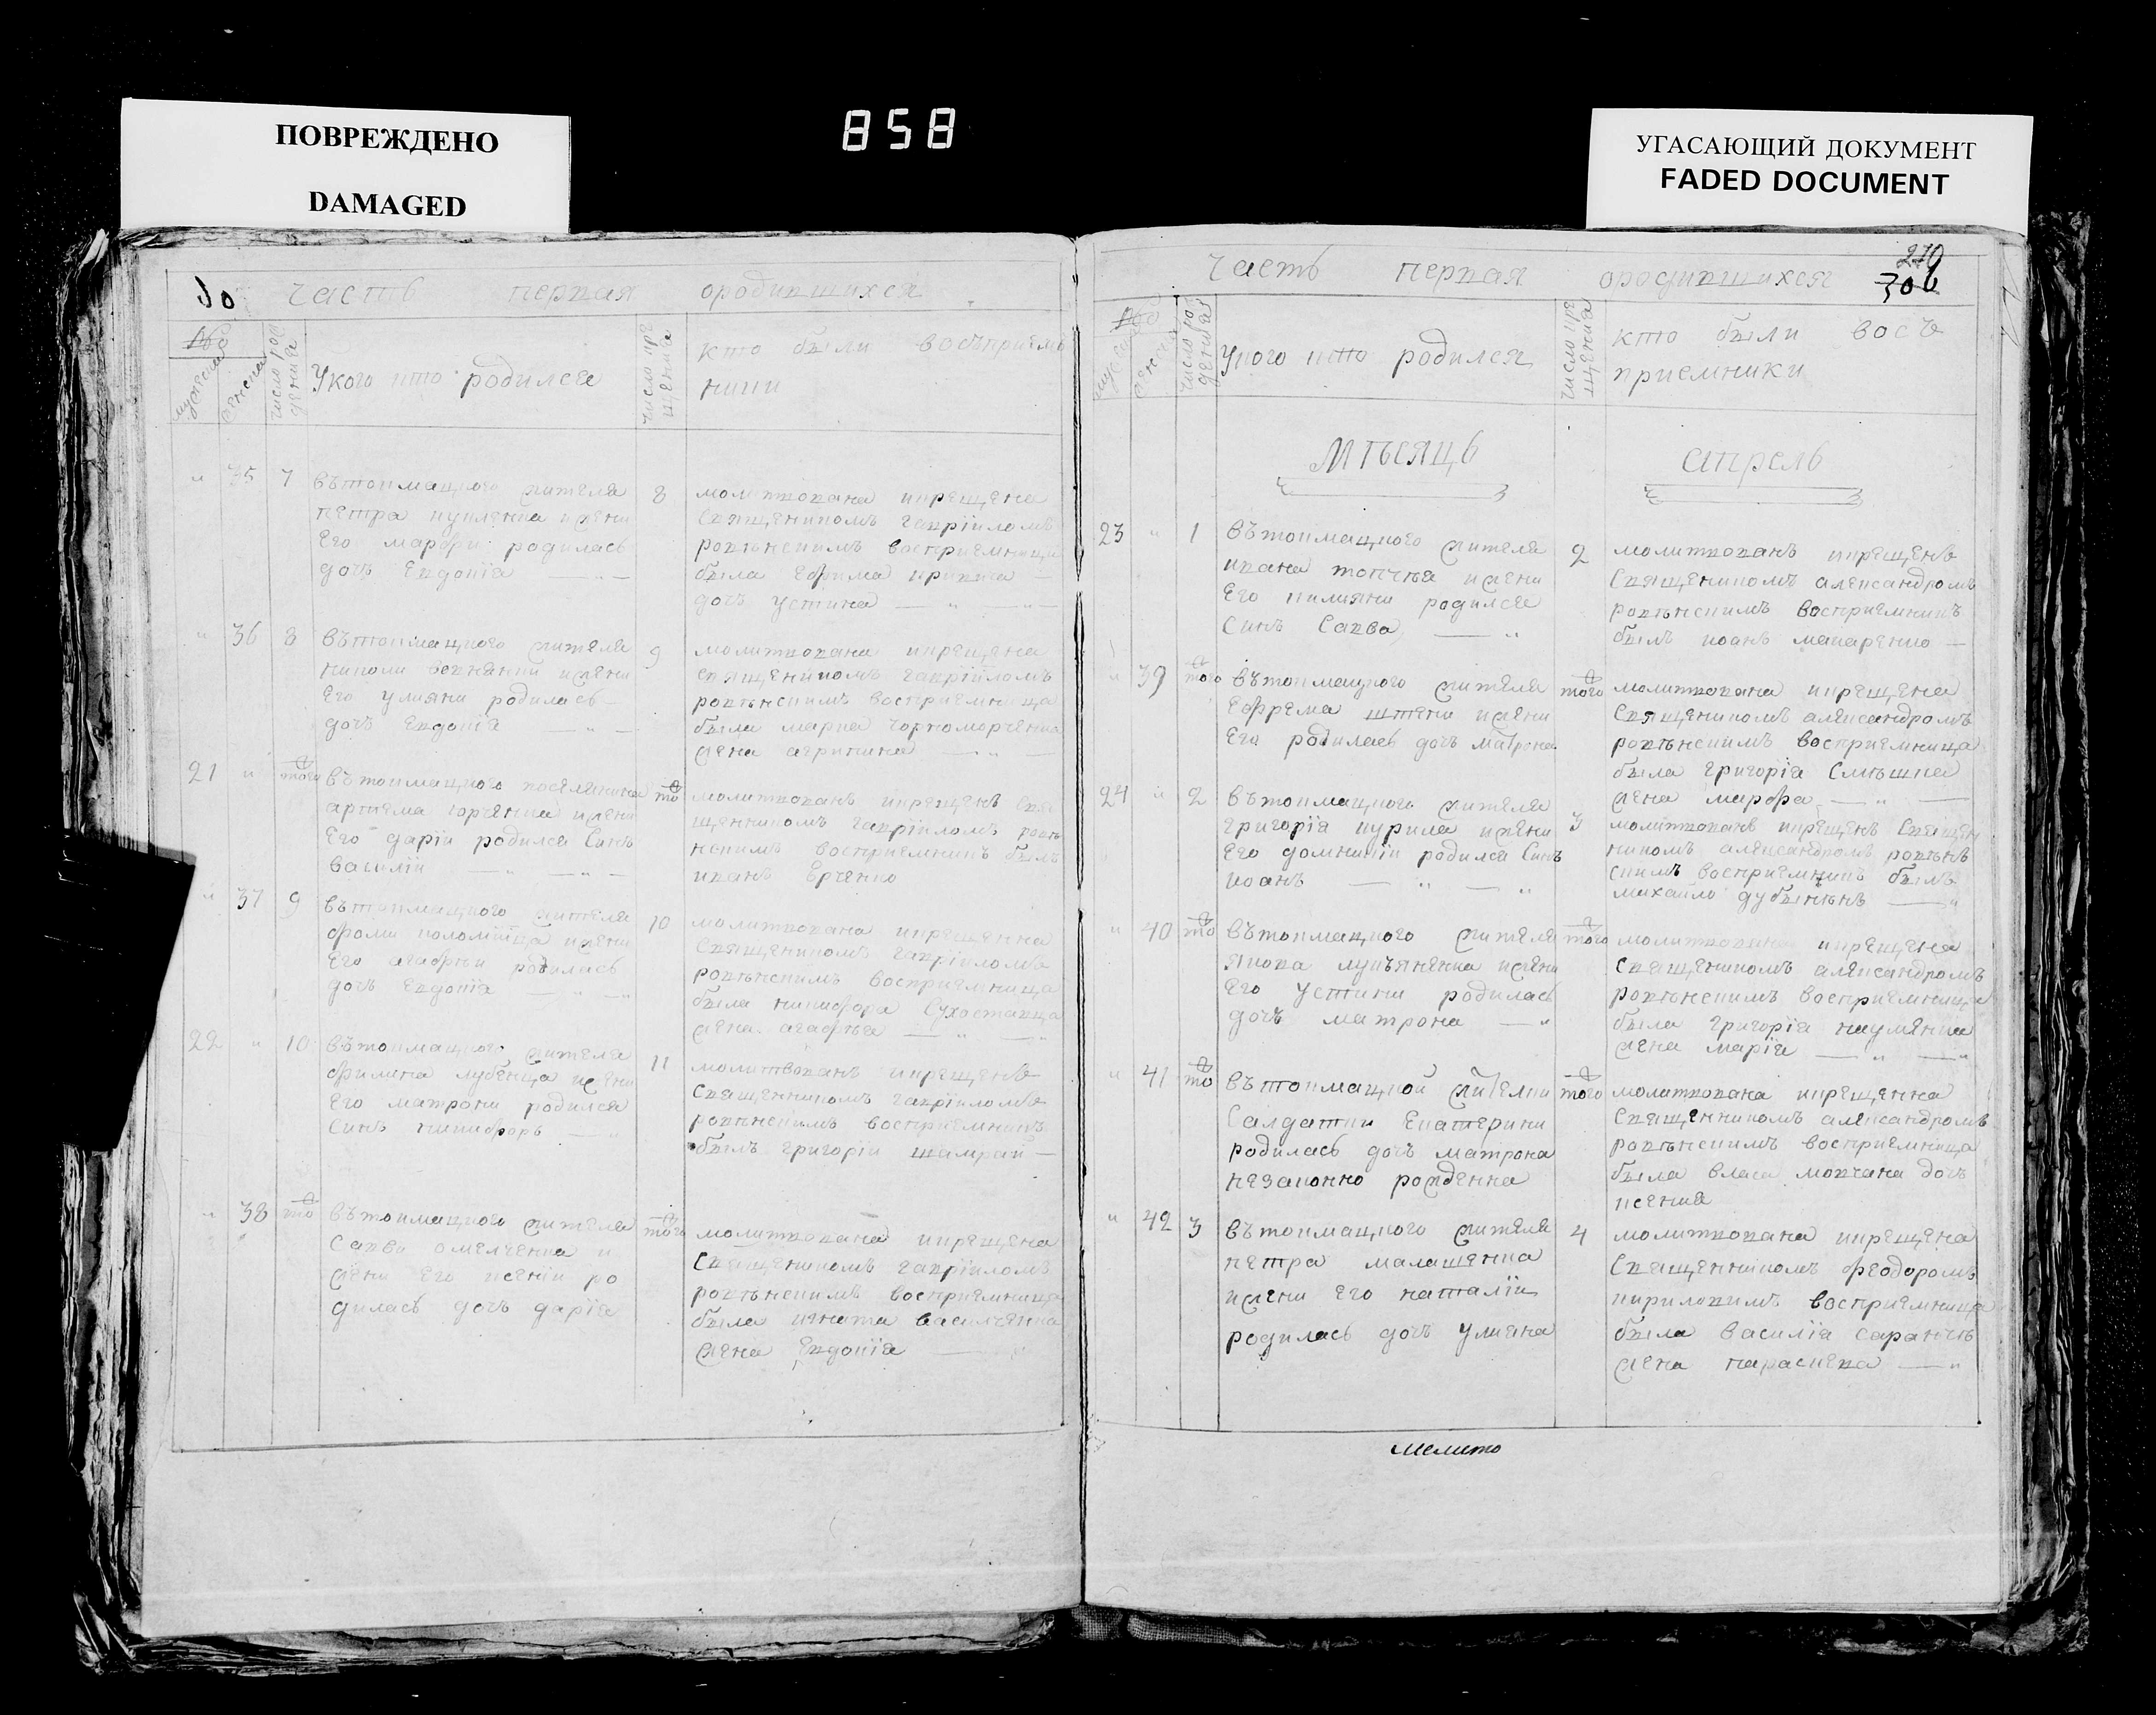 ПОВРЕЖДЕНО
DAMAGED
858
УГАСАЮЩИЙ ДОКУМЕНТ
FADED DOCUMENT
часть первая ородившихся
число рождения
Укого кто родился
число крещения
кто были восприем
ники
35 7 8
вътокмацкого жителя
петра жени
его марфи родилась
дочъ Евдокіа
молитвована икрещена
Священикомъ гавріиломъ
ровѣнскимъ восприемница
была Ефима
дочъ устина
36 8 9
вътокмацкого жителя
николи ижени
его улияни родилась
дочъ Евдокіа
молитвована икрещена
священикомъ гавріиломъ
ровѣнскимъ восприемница
была марка чорноморченка
жена агрипина
21 того то
вътокмацкого поселянина
артема юрченка ижени
Его даріи родился Синъ
василій
молитвованъ икрещенъ Свя
щенникомъ гавріиломъ ровѣ
нскимъ восприемникъ былъ
иванъ
37 9 10
вътокмацкого жителя
фоми коломійца ижени
Его агафии родилась
дочъ Евдокіа
молитвована икрещенна
Священикомъ гавріиломъ
ровѣнскимъ восприемница
была никифора Сухоставца
жена агафѣа
22 10 11
вътокмацкого жителя
филипа лубенца ижени
Его матрони родился
Синъ никифоръ
молитвованъ икрещенъ
Священникомъ гавріиломъ
ровѣнскимъ восприемникъ
былъ григорій шамрай
38 то того
вътокмацкого жителя
Савви омелченка и
жени Его ксеніи ро
дилась дочъ даріа
молитвована икрещена
Священикомъ гавріиломъ
ровѣнскимъ восприемница
была игната василченка
жена Евдокіа
часть первая ородившихся
270
306
число рождения
Укого кто родился
число крещения
кто были восъ
приемники
мѣсяцъ апрель
23 1 2
вътокмацкого жителя
ивана топчѣа ижени
Его килияни родился
Синъ Савва
молитвованъ икрещенъ
Священикомъ александромъ
ровѣнскимъ восприемникъ
былъ иоанъ макаренко
39 того того
вътокмацкого жителя
Ефрема ижени
Его родилась дочъ матрона
молитвована икрещена
Священикомъ александромъ
ровѣнскимъ восприемница
была григоріа Смѣшка
жена марфа
24 2 3
вътокмацкого жителя
григоріа курила ижени
Его домникіи родился Синъ
иоанъ
молитвованъ икрещенъ Священ
никомъ александромъ ровѣнъ
скимъ восприемникъ былъ
михайло
40 то того
вътокмацкого жителя
якова лукъяненка ижени
Его устини родилась
дочъ матрона
молитвована икрещена
Священикомъ александромъ
ровѣнскимъ восприемница
была григоріа науменка
жена маріа
41 то того
вътокмацкой жителки
Салдатки Екатерини
родилась дочъ матрона
незаконно рожденна
молитвована икрещенна
Священникомъ александромъ
ровѣнскимъ восприемница
была власа мовчана дочъ
ксения
42 3 4
вътокмацкого жителя
петра малашенка
ижени Его наталіи
родилась дочъ улияна
молитвована икрещена
Священникомъ феодоромъ
кириловимъ восприемница
была василіа саранчѣ
жена параскева